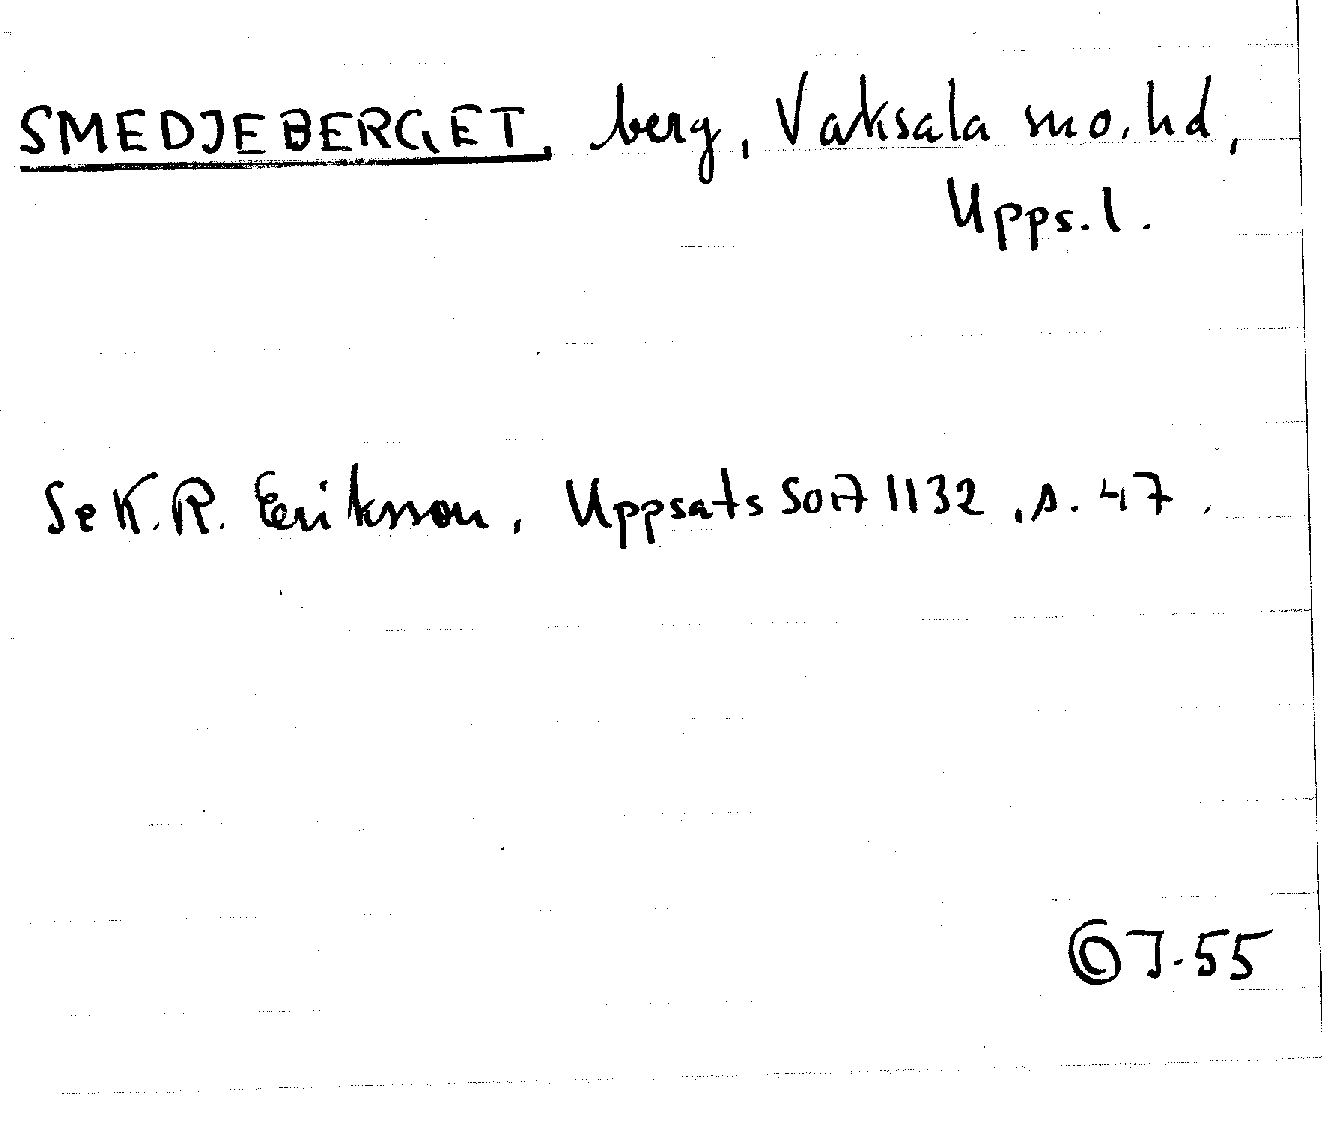 SMEDJEBERGET, berg, Vaksala sn o. hd,
Upps. l.
Se K. R. Eriksson, Uppsats SOA 1132, s. 47.
55